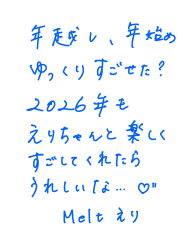 年越し、年始め
ゆっくりすごせた？
2026年も
えりちゃんと楽しく
すごしてくれたら
うれしいな…♡"
Melt えり